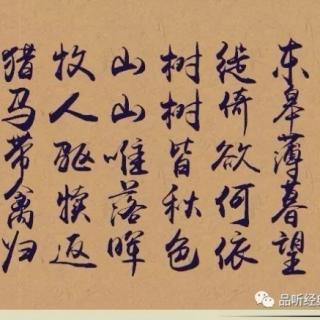 东皋薄暮望
徙倚欲何依
树树皆秋色
山山唯落晖
牧人驱犊返
猎马带禽归
品听经典